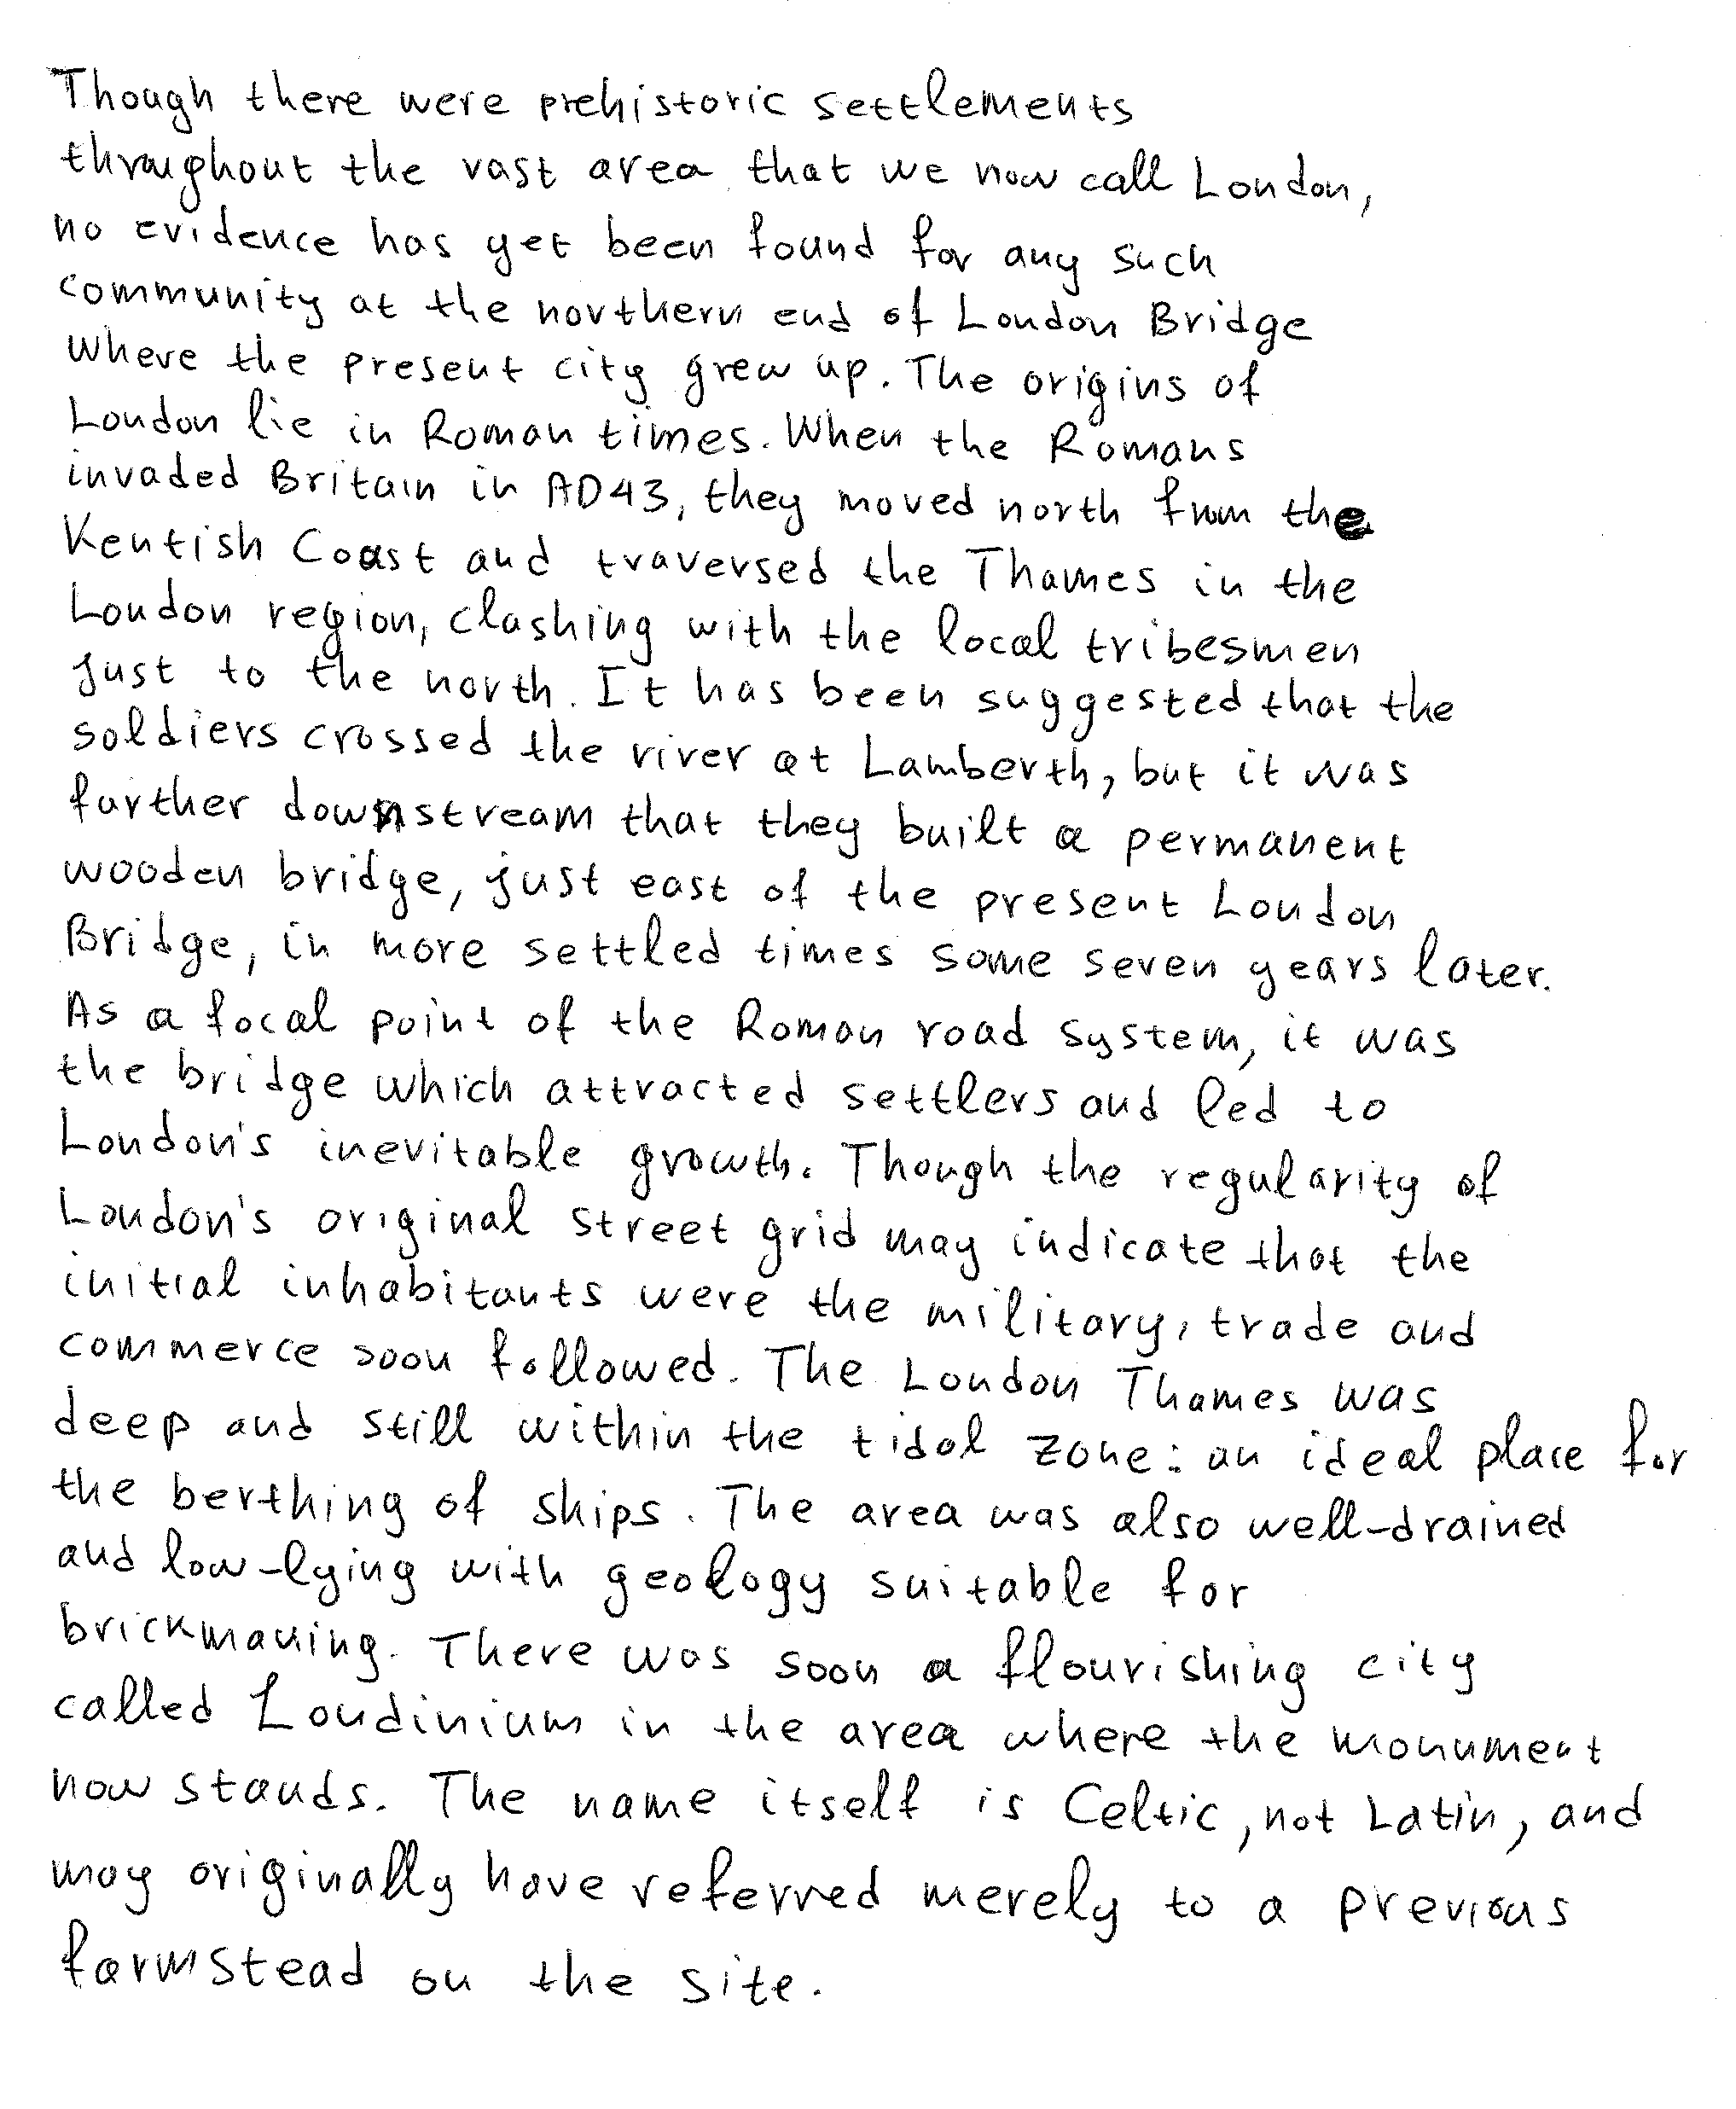 Though there were prehistoric settlements
throughout the vast area that we now call London,
no evidence has yet been found for any such
community at the northern end of London Bridge
where the present city grew up. The origins of
London lie in Roman times. When the Romans
invaded Britain in AD43, they moved north from the
Kentish Coast and traversed the Thames in the
London region, clashing with the local tribesmen
just to the north. It has been suggested that the
soldiers crossed the river at Lamberth, but it was
further downstream that they built a permanent
wooden bridge, just east of the present London
Bridge, in more settled times some seven years later.
As a focal point of the Roman road system, it was
the bridge which attracted settlers and led to
London's inevitable growth. Though the regularity of
London's original street grid may indicate that the
initial inhabitants were the military, trade and
commerce soon followed. The London Thames was
deep and still within the tidal zone: an ideal place for
the berthing of ships. The area was also well-drained
and low-lying with geology suitable for
brickmaking. There was soon a flourishing city
called Londinium in the area where the monument
now stands. The name itself is Celtic, not Latin, and
may originally have referred merely to a previous
farmstead on the site.